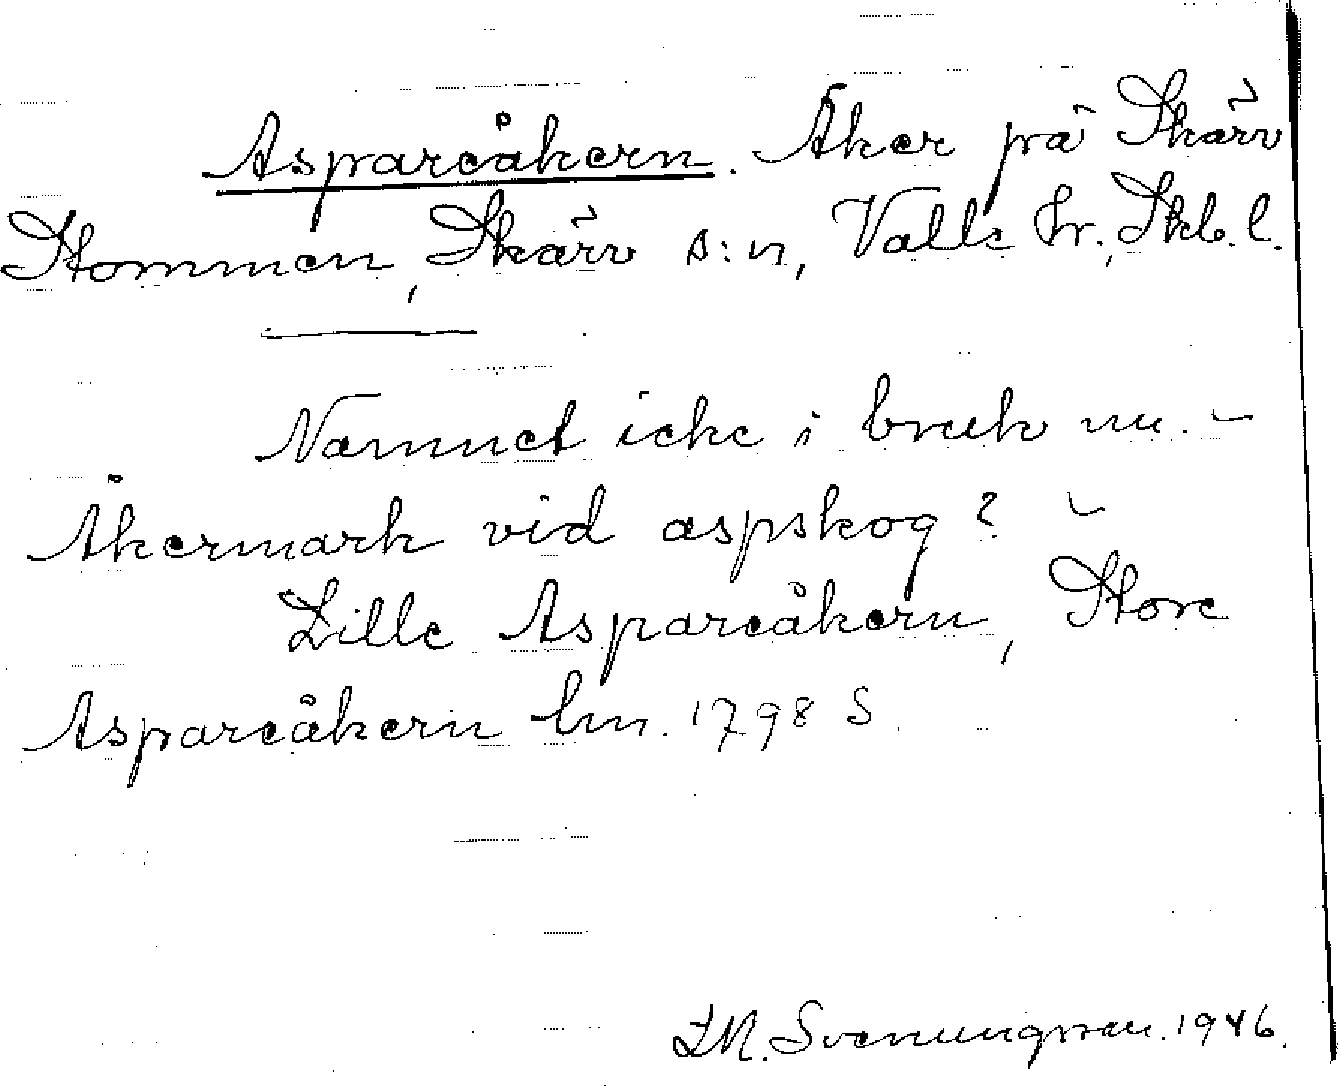 Aspareåkern. Åker på Skärv
Stommen, Skärv s:n, Valle hr., Skb. l.
Namnet icke i bruk nu. –
Åkermark vid aspskog? –
Lille Aspareåkern, Store
Aspareåkern lm. 1798 S
I M. Svenungsson. 1946.